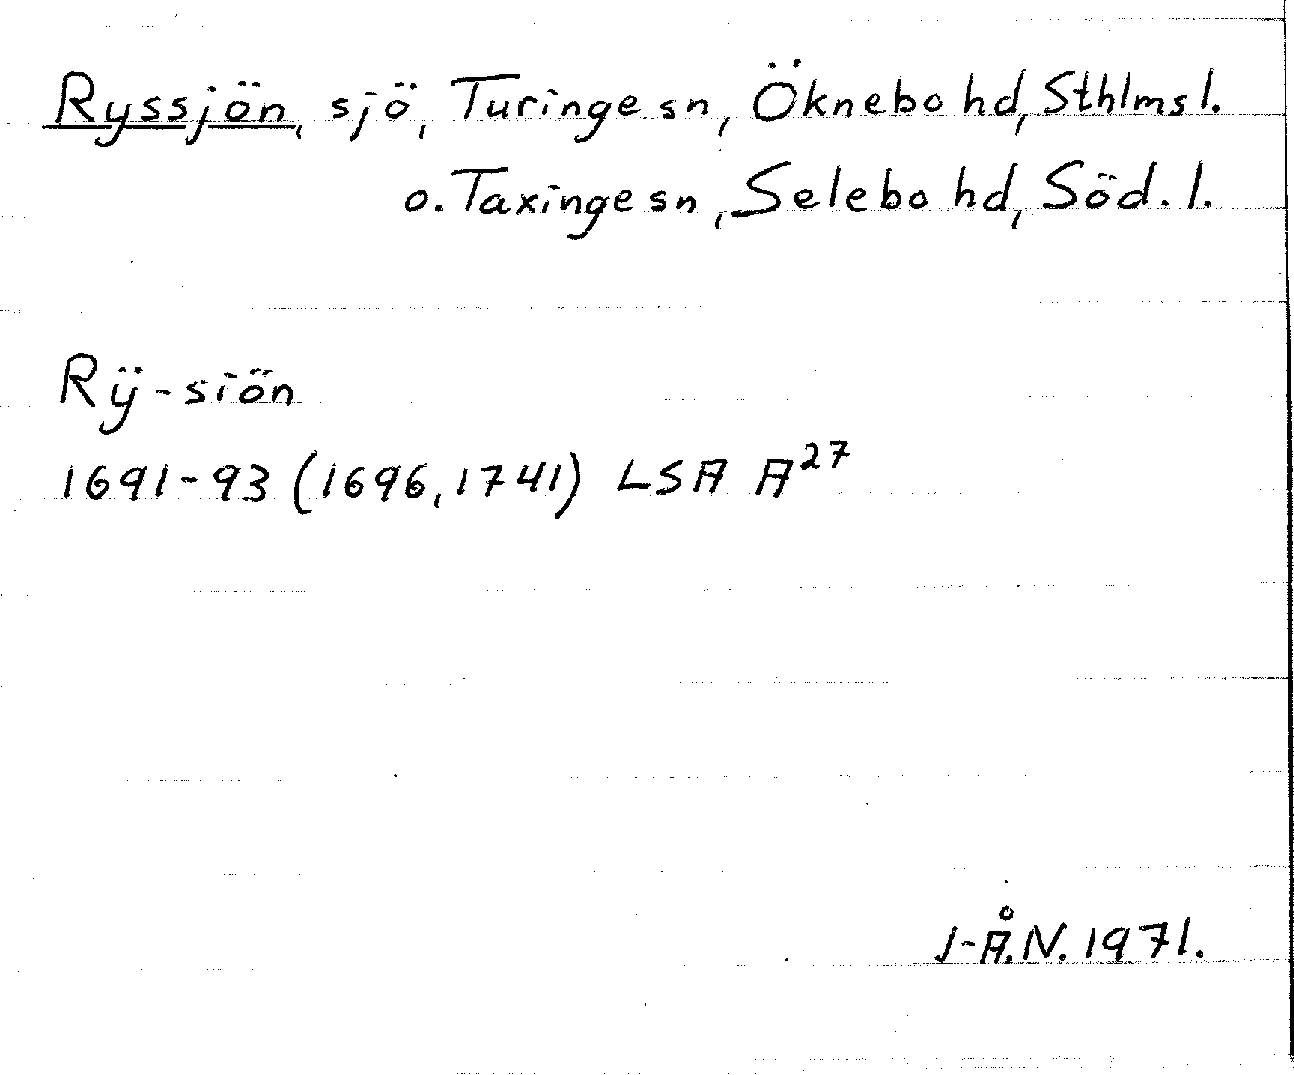 Ryssjön, sjö, Turinge sn, Öknebo hd, Sthlms l.
o. Taxinge sn, Selebo hd, Söd. l.
Rÿ-siön
1691-93 (1696, 1741) LSA A²⁷
J-Å.N. 1971.